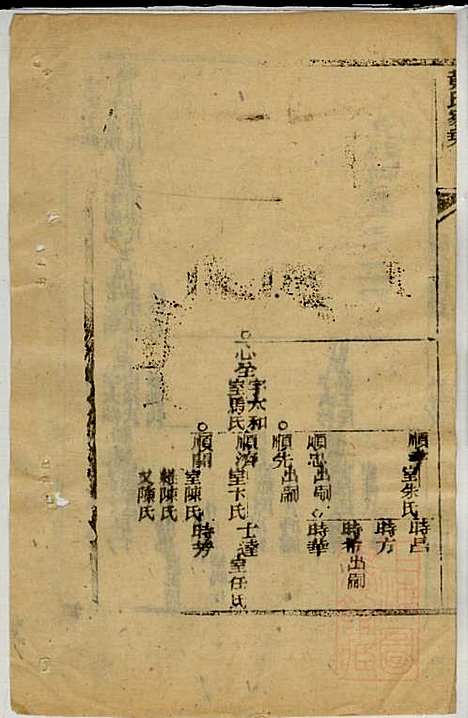 黄氏
心荃
字太和
室馬氏
順
室朱氏
時昌
時方
時
出嗣
順忠
出嗣
時華
順先
出嗣
順濟
室卞氏
士達
室任氏
順開
室陳氏
時芳
繼陳氏
又陳氏